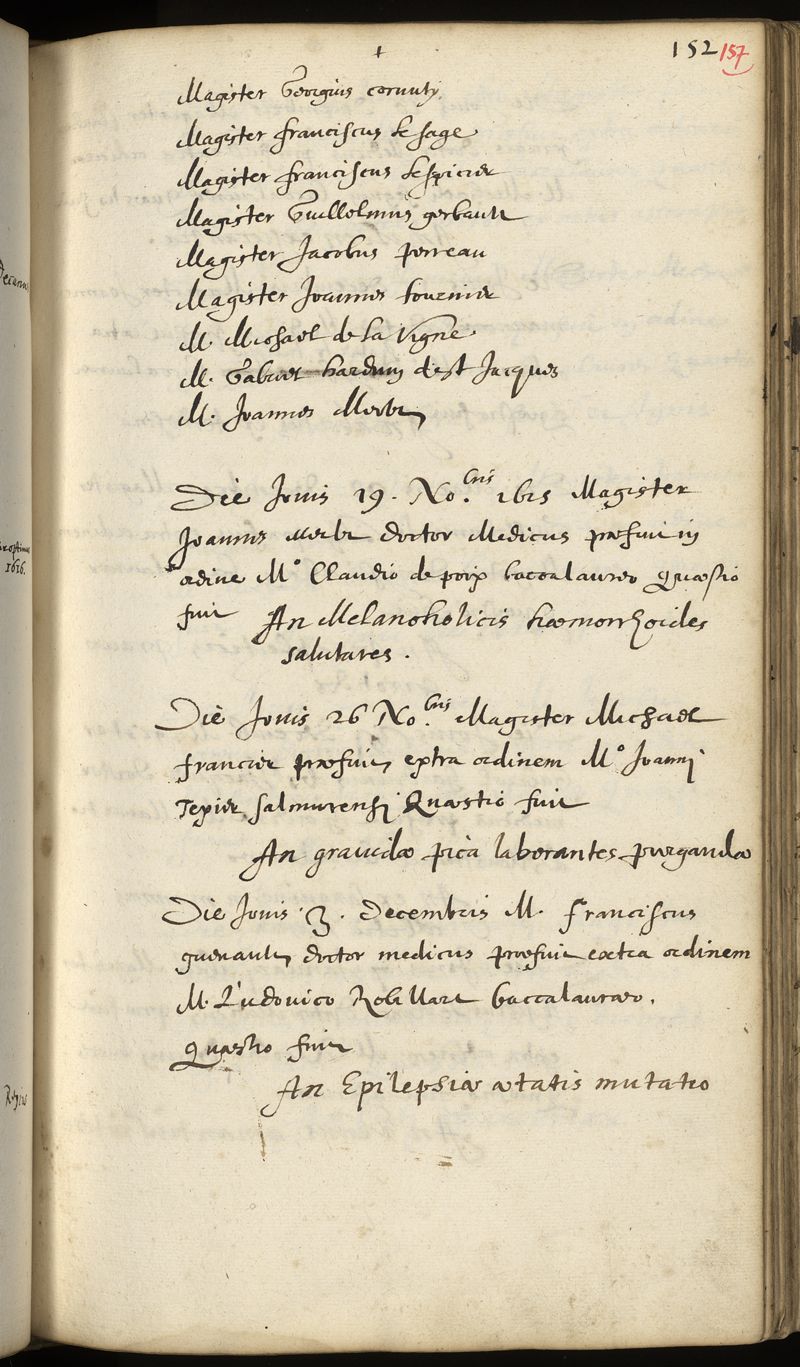 152 157
Magister Georgius cornuty
Magister franciscus le sage
Magister franciscus lespicier
Magister Guillelmus gerbault
Magister Jacobus perreau
Magister Joannes tournier
M. Michael de la Vigne
M. Gabriel harduin de st Jacques
M. Joannes Merlet
Die Jovis 19. No.bris 1615 Magister
Joannes Merlet doctor Medicus præfuit in
ordine Mo Claudio de poix baccalaureo Quæstio
fuit An Melancholicis hæmorrhoides
salutares.
Die Jovis 26 No.bris Magister Michael
francier præfuit extra ordinem Mo Joanni
Texier salmurensi Quæstio fuit
An gravidæ pica laborantes purgandæ
Die Jovis 3. Decembris M. Franciscus
guenault doctor medicus præfuit extra ordinem
M. Ludovico Robillart baccalaureo.
Quæstio fuit
An Epilepsiæ ætatis mutatio
1616.